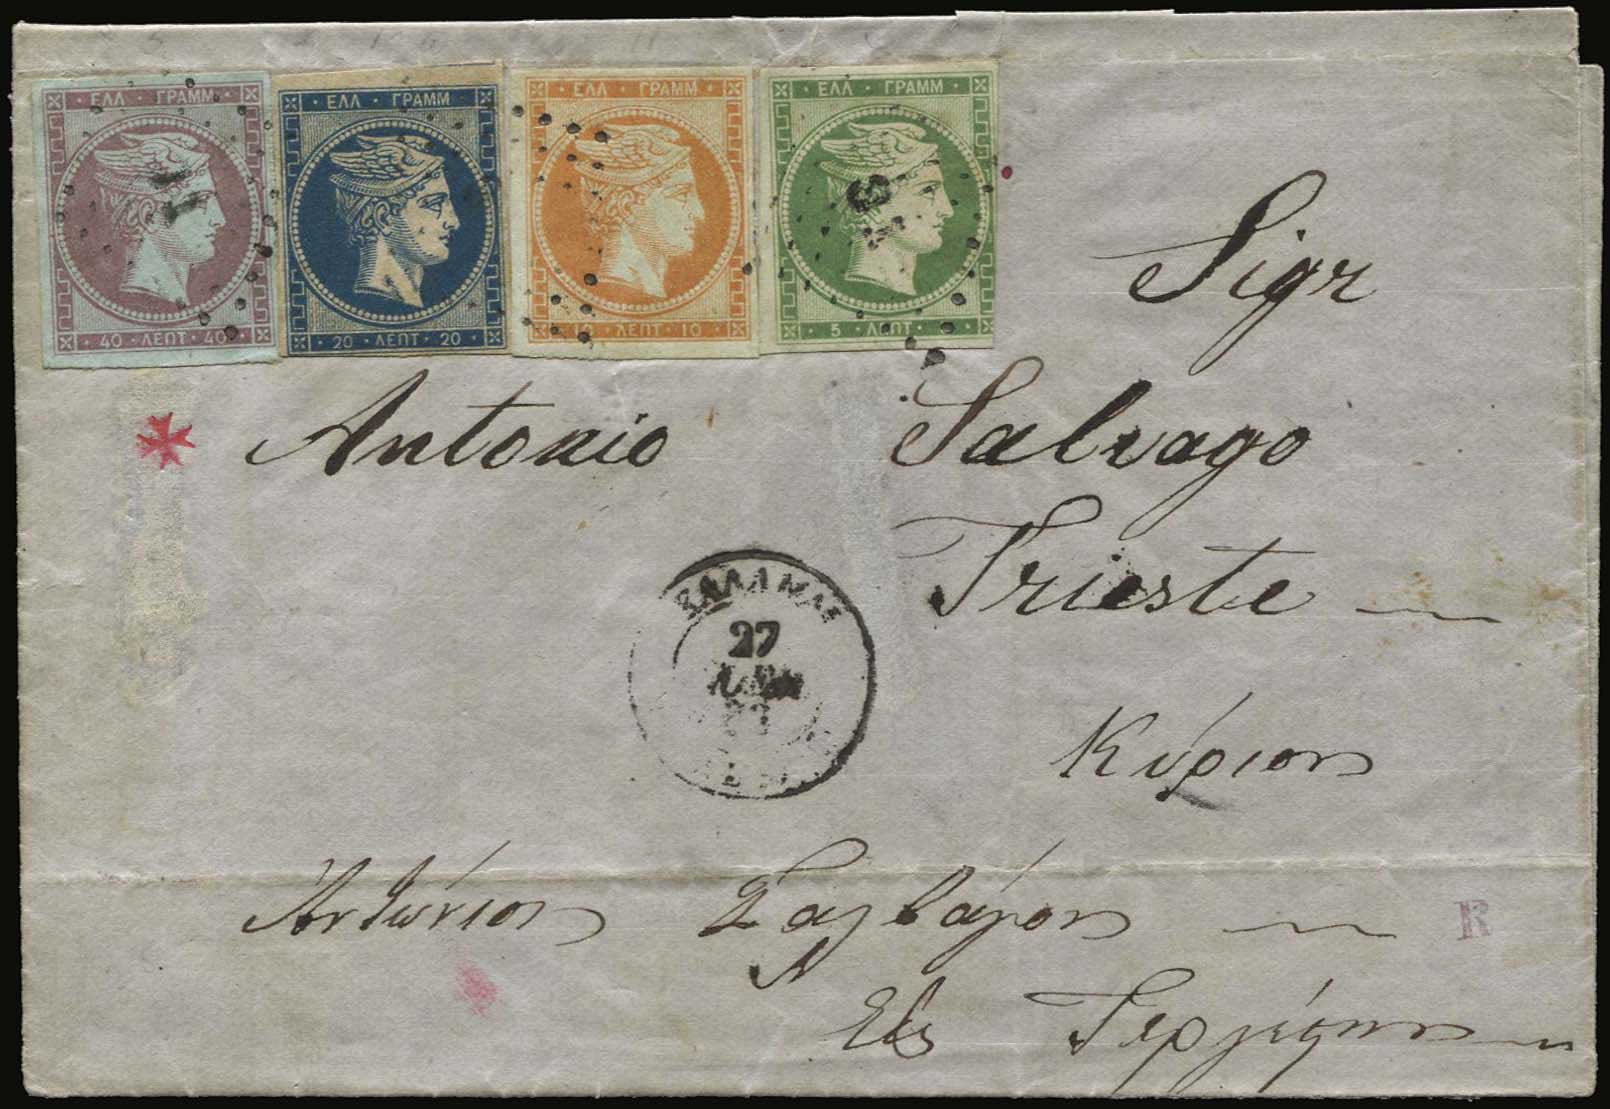 ΕΛΛ · ΓΡΑΜΜ
40 · ΛΕΠΤ · 40
ΕΛΛ · ΓΡΑΜΜ
20 · ΛΕΠΤ · 20
ΕΛΛ · ΓΡΑΜΜ
10 · ΛΕΠΤ · 10
ΕΛΛ · ΓΡΑΜΜ
5 · ΛΕΠΤ ·
Sigr
Antonio Salvago
Trieste
27
Κύριον
Ἀντώνιον Σαλβάγον
R
Εἰς Τεργέστην